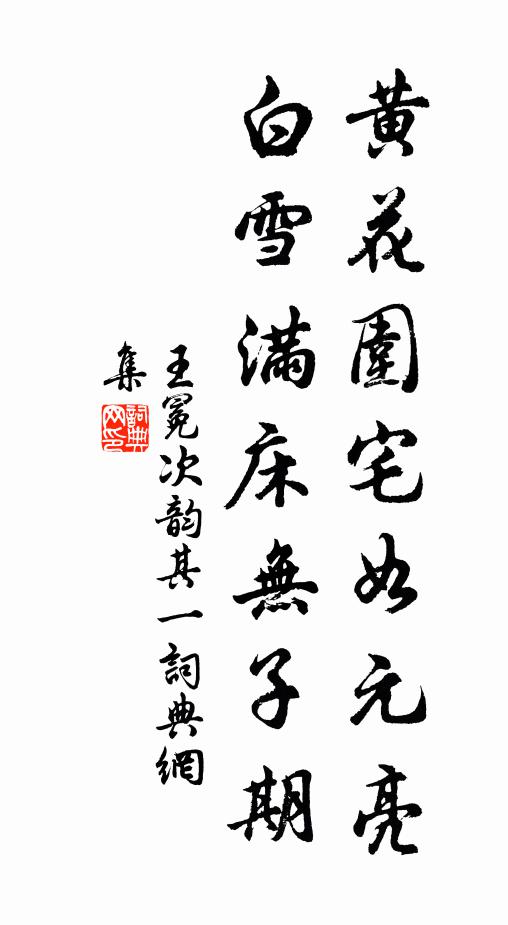 黃花圍宅如元亮
白雪滿床無子期
王冕次韵其一詞典網
集
詞典网印